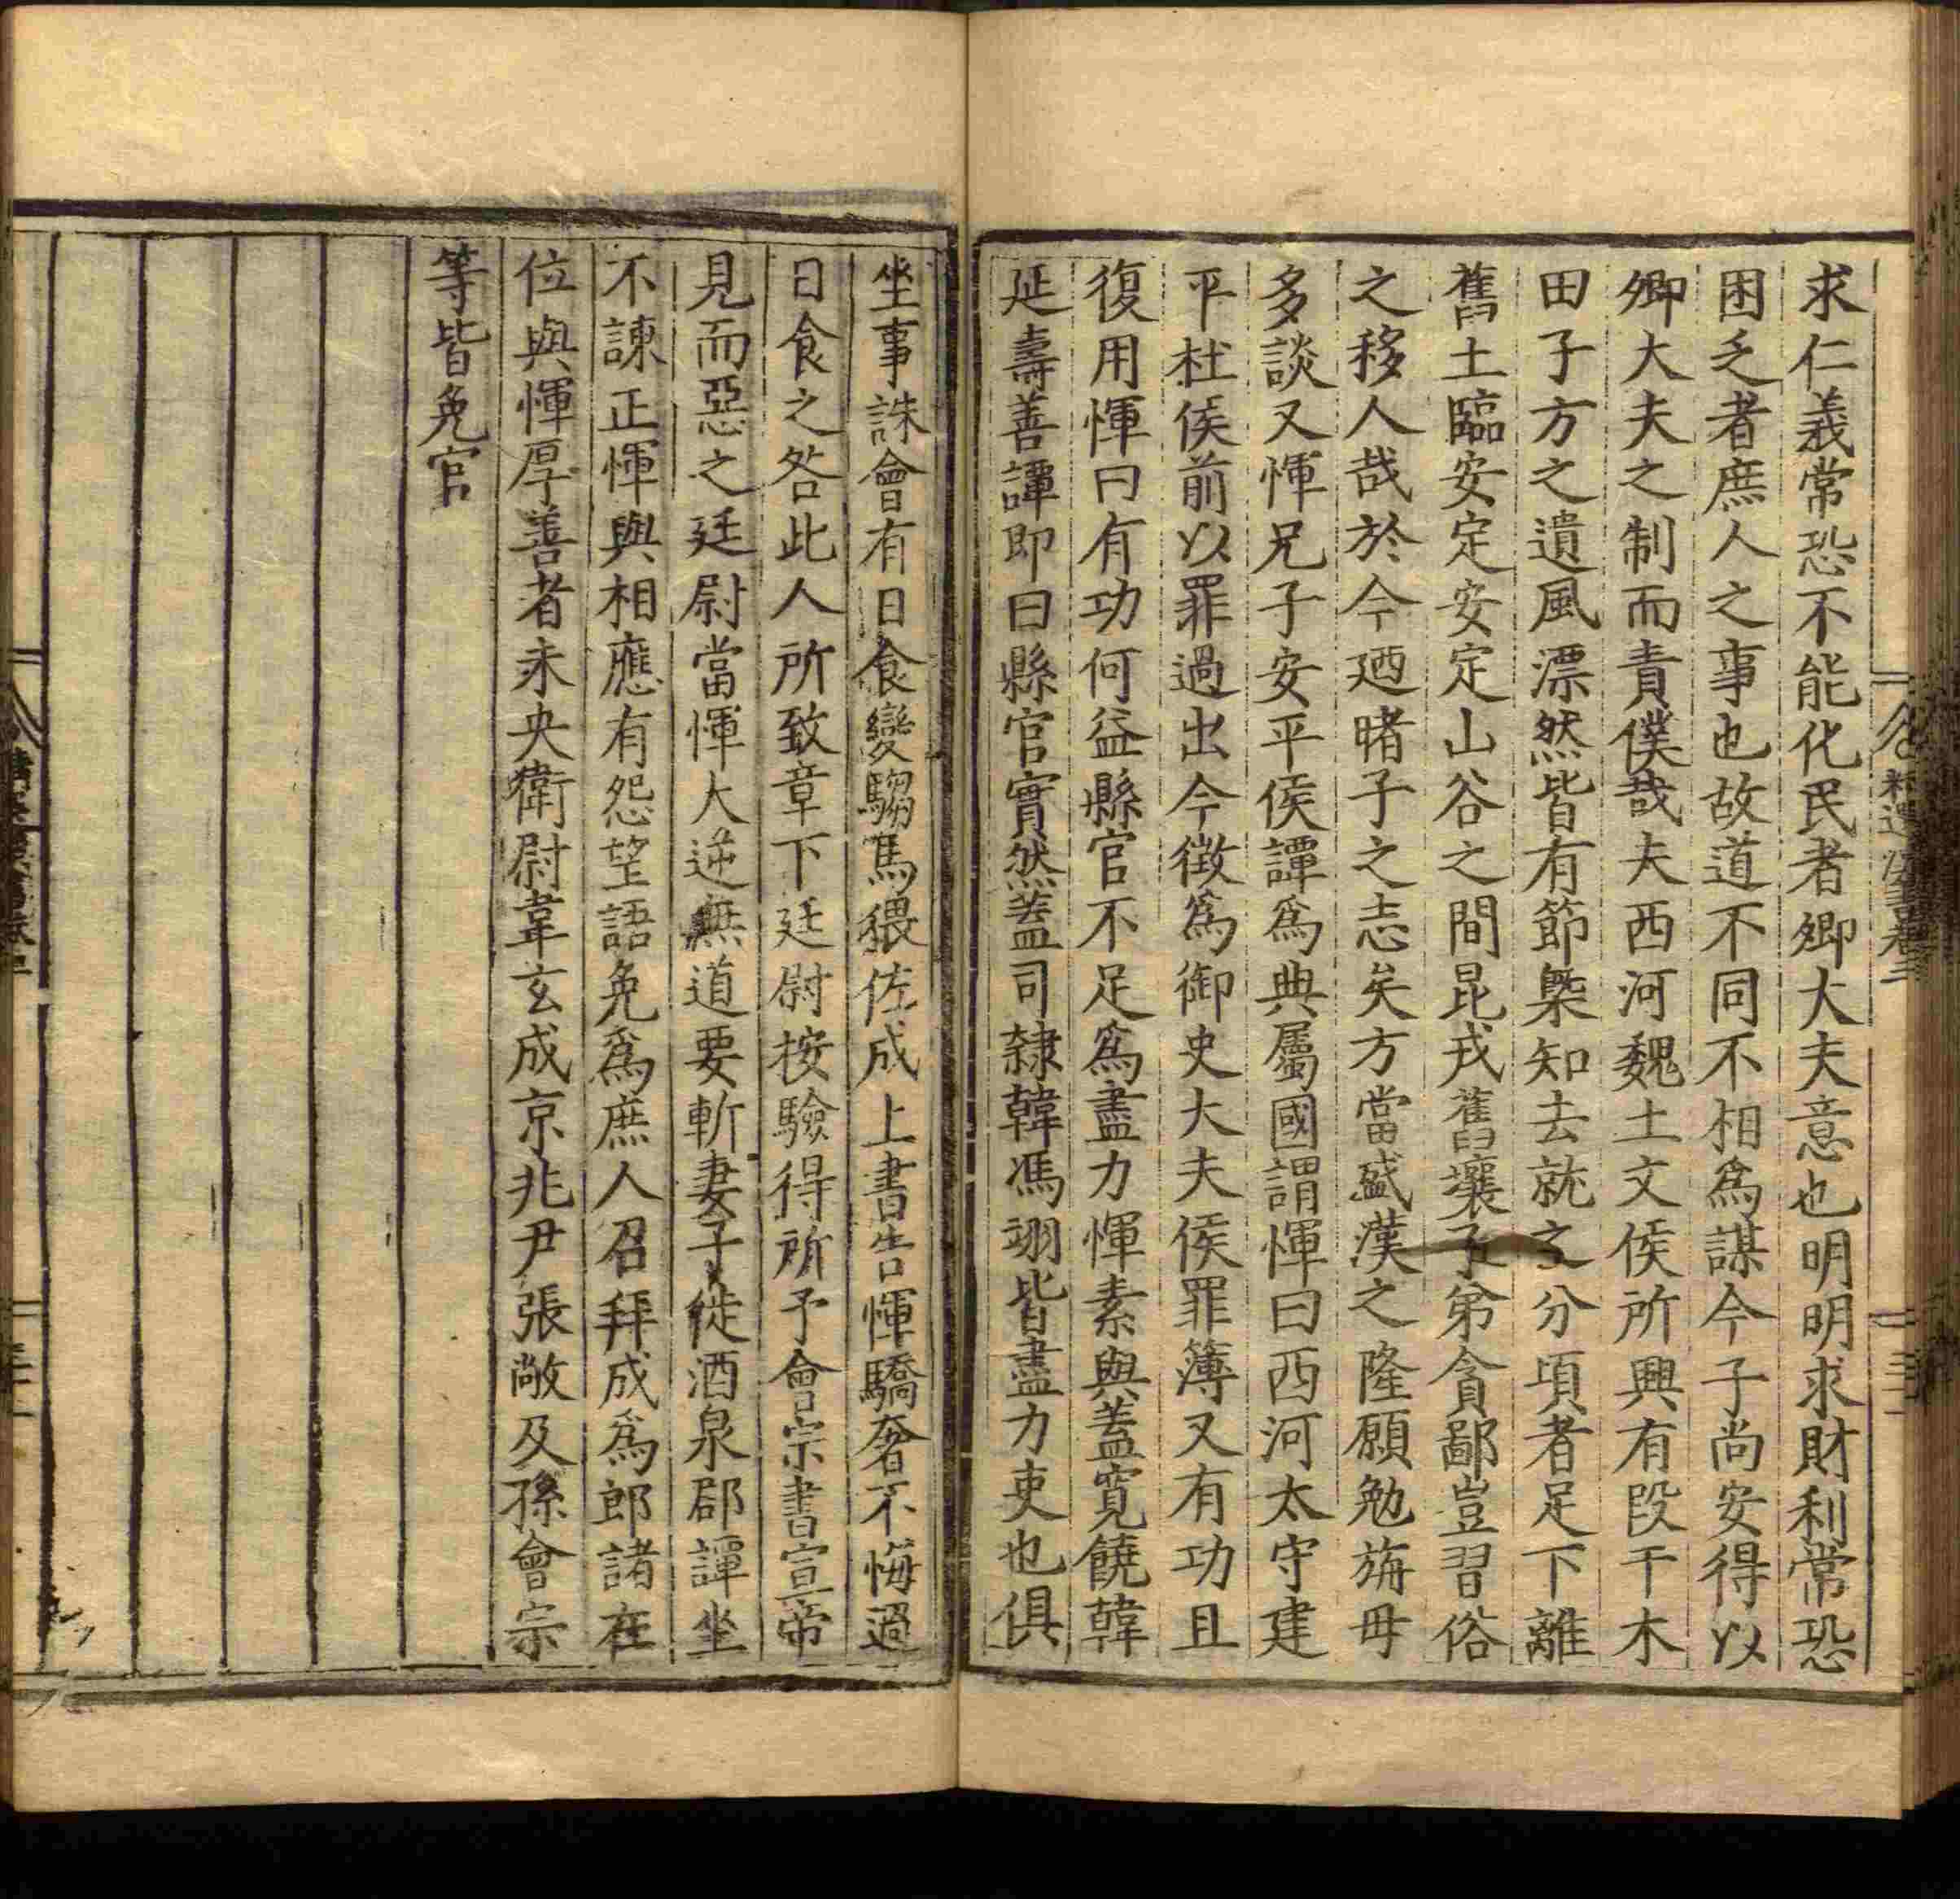 求仁義常恐不能化民者卿大夫意也明明求財利常恐
困乏者庶人之事也故道不同不相爲謀今子尚安得以
卿大夫之制而責僕哉夫西河魏土文侯所興有段干木
田子方之遺風漂然皆有節槩知去就之分頃者足下離
舊土臨安定安定山谷之間昆戎舊壤子弟貪鄙豈習俗
之移人哉於今迺睹子之志矣方當盛漢之隆願勉旃毋
多談又惲兄子安平侯譚爲典屬國謂惲曰西河太守建
平杜侯前以罪過出今徴爲御史大夫侯罪簿又有功且
復用惲曰有功何益縣官不足爲盡力惲素與蓋寬饒韓
延壽善譚即曰縣官實然蓋司隸韓馮翊皆盡力吏也俱
坐事誅會有日食變騶馬猥佐成上書告惲驕奢不悔過
日食之咎此人所致章下廷尉按驗得所予會宗書宣帝
見而惡之廷尉當惲大逆無道要斬妻子徙酒泉郡譚坐
不諫正惲與相應有怨望語免爲庶人召拜成爲郎諸在
位與惲厚善者未央衛尉韋玄成京兆尹張敞及孫會宗
等皆免官